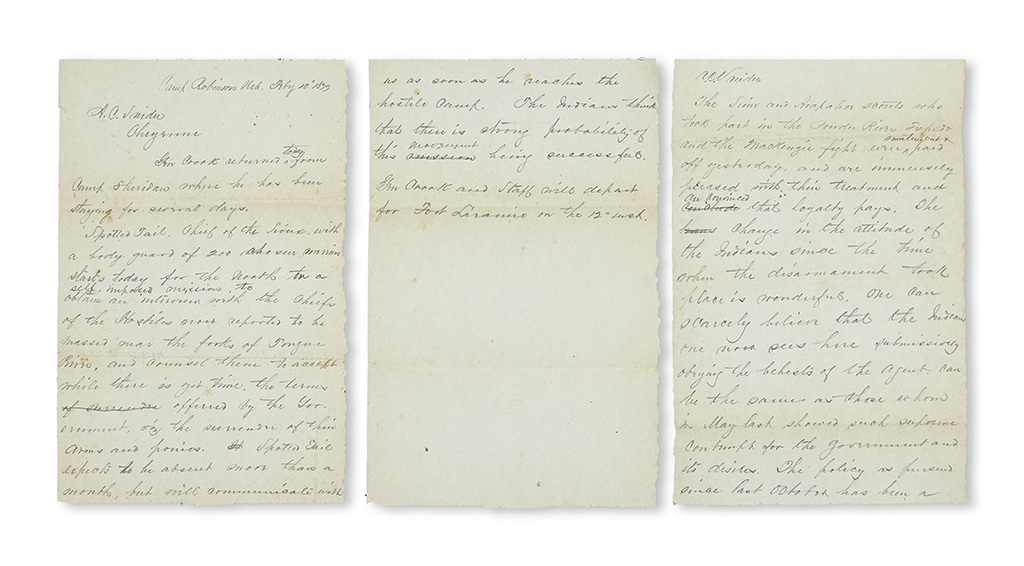 Camp Robinson Neb. Feby 10' 1877
A. C. Snider
Cheyenne
today
Gen Crook returned from
Camp Sheridan where he has been
staying for several days.
Spotted Tail. Chief of the Sioux, with
a body guard of 200 chosen warriors
starts today for the North on a
self imposed mission, to
obtain an interview with the Chiefs
of the Hostiles now reported to be
massed near the forks of Tongue
River, and counsel them to accept
while there is yet time, the terms
of surrender offered by the Gov-
ernment, viz the surrender of their
Arms and ponies. Spotted Tail
expects to be absent more than a
month, but will communicate with
us as soon as he reaches the
hostile Camp. The Indians think
that there is strong probability of
movement
this mission being successful.
Gen Crook and Staff will depart
for Fort Laramie on the 12" inst.
A. C. Snider
The Sioux and Arapahoe scouts who
took part in the Powder River Expdn
and the Mackenzie fight were paid
off yesterday, and are immensely
pleased with their treatment and
are convinced
conclude that loyalty pays. The
change in the attitude of
the Indians since the time
when the disarmament took
place is wonderful, one can
scarcely believe that the Indian
one now sees here submissively
obeying the behests of the Agent, can
be the same as those whom
in May last showed such supreme
Contempt for the Government and
its desires. The policy as pursued
since last October has been a